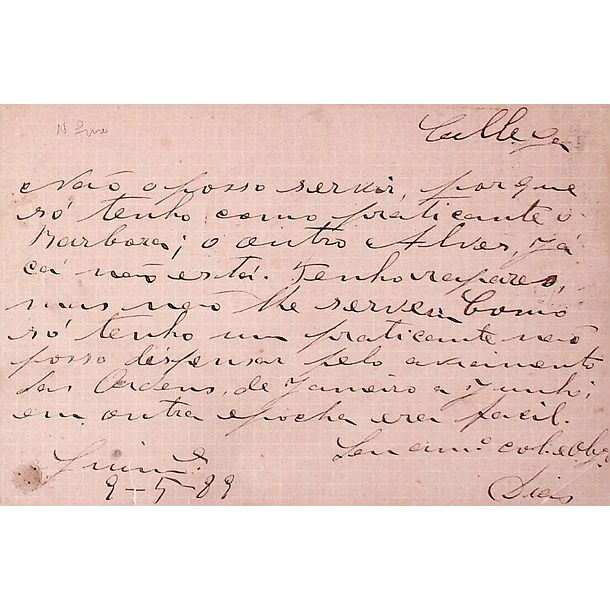 Collega
Não o posso servir, porque
só tenho como praticante o
Barbora; o outro Alves, já
cá não está. Tenho rapazes,
mas não lhe servem. Como
só tenho um praticante não
posso despensar pelo aviamento
das Ordens, de Janeiro a Junho;
em outra epocha era facil.
Seu am.º col. e obg.º
Guim.es
9-5-89
Dias